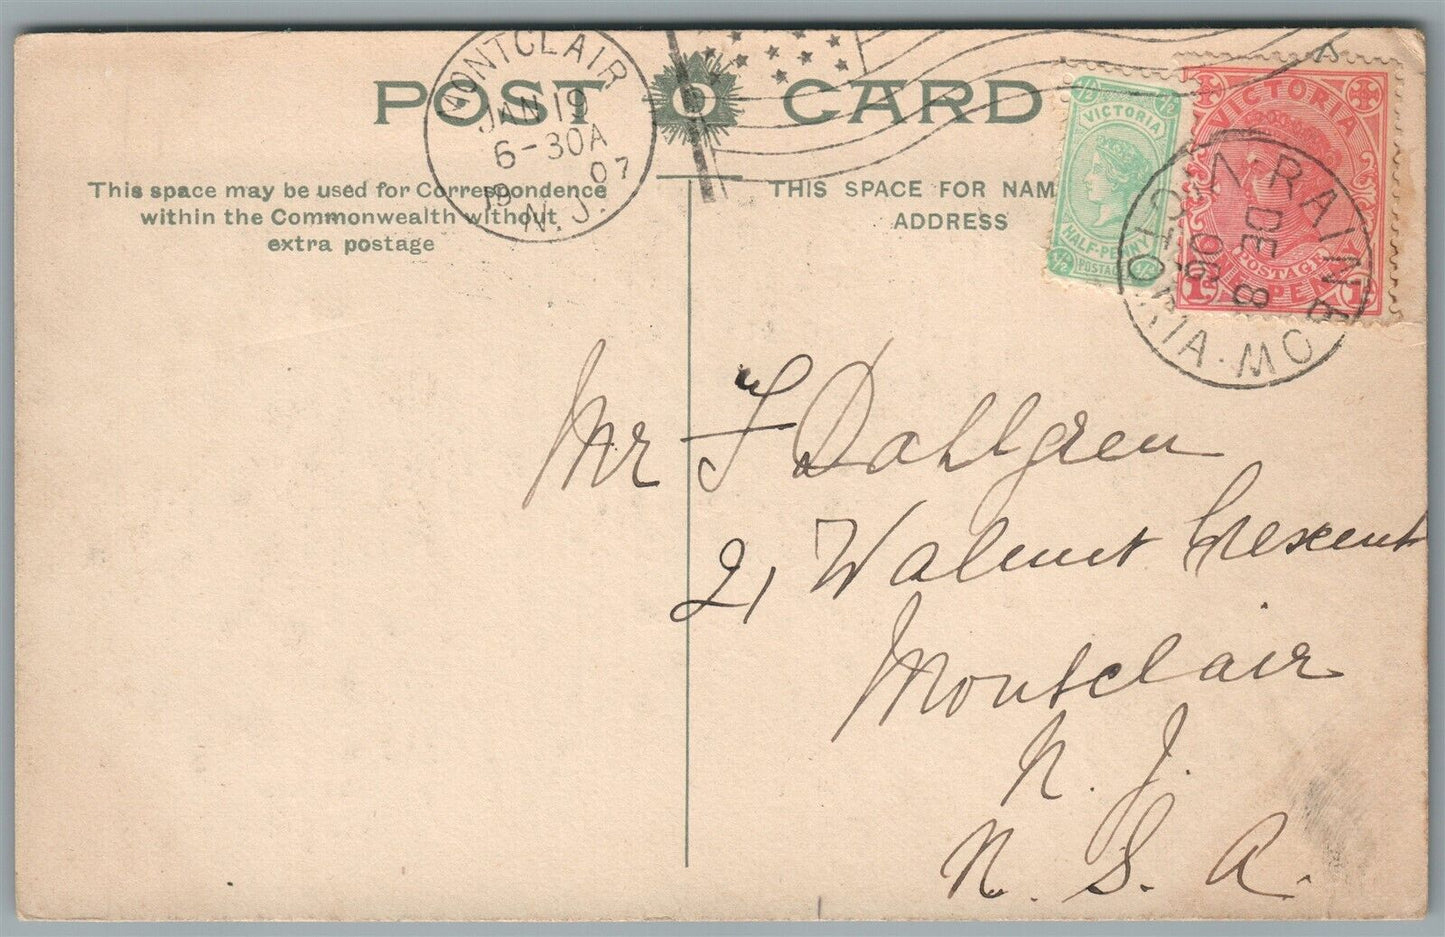 POST CARD
MONTCLAIR
JAN 19
6-30A
19 07
N.J.
This space may be used for Correspondence
within the Commonwealth without
extra postage
THIS SPACE FOR NAM
ADDRESS
VICTORIA
HALF-PENNY
½ POSTAGE ½
VICTORIA
POSTAGE
1 PEN 1
RAINBOW
DE 8
06
VICTORIA
Mr F Dahlgren
21 Walnut Crescent
Montclair
N. J.
N. S. A.